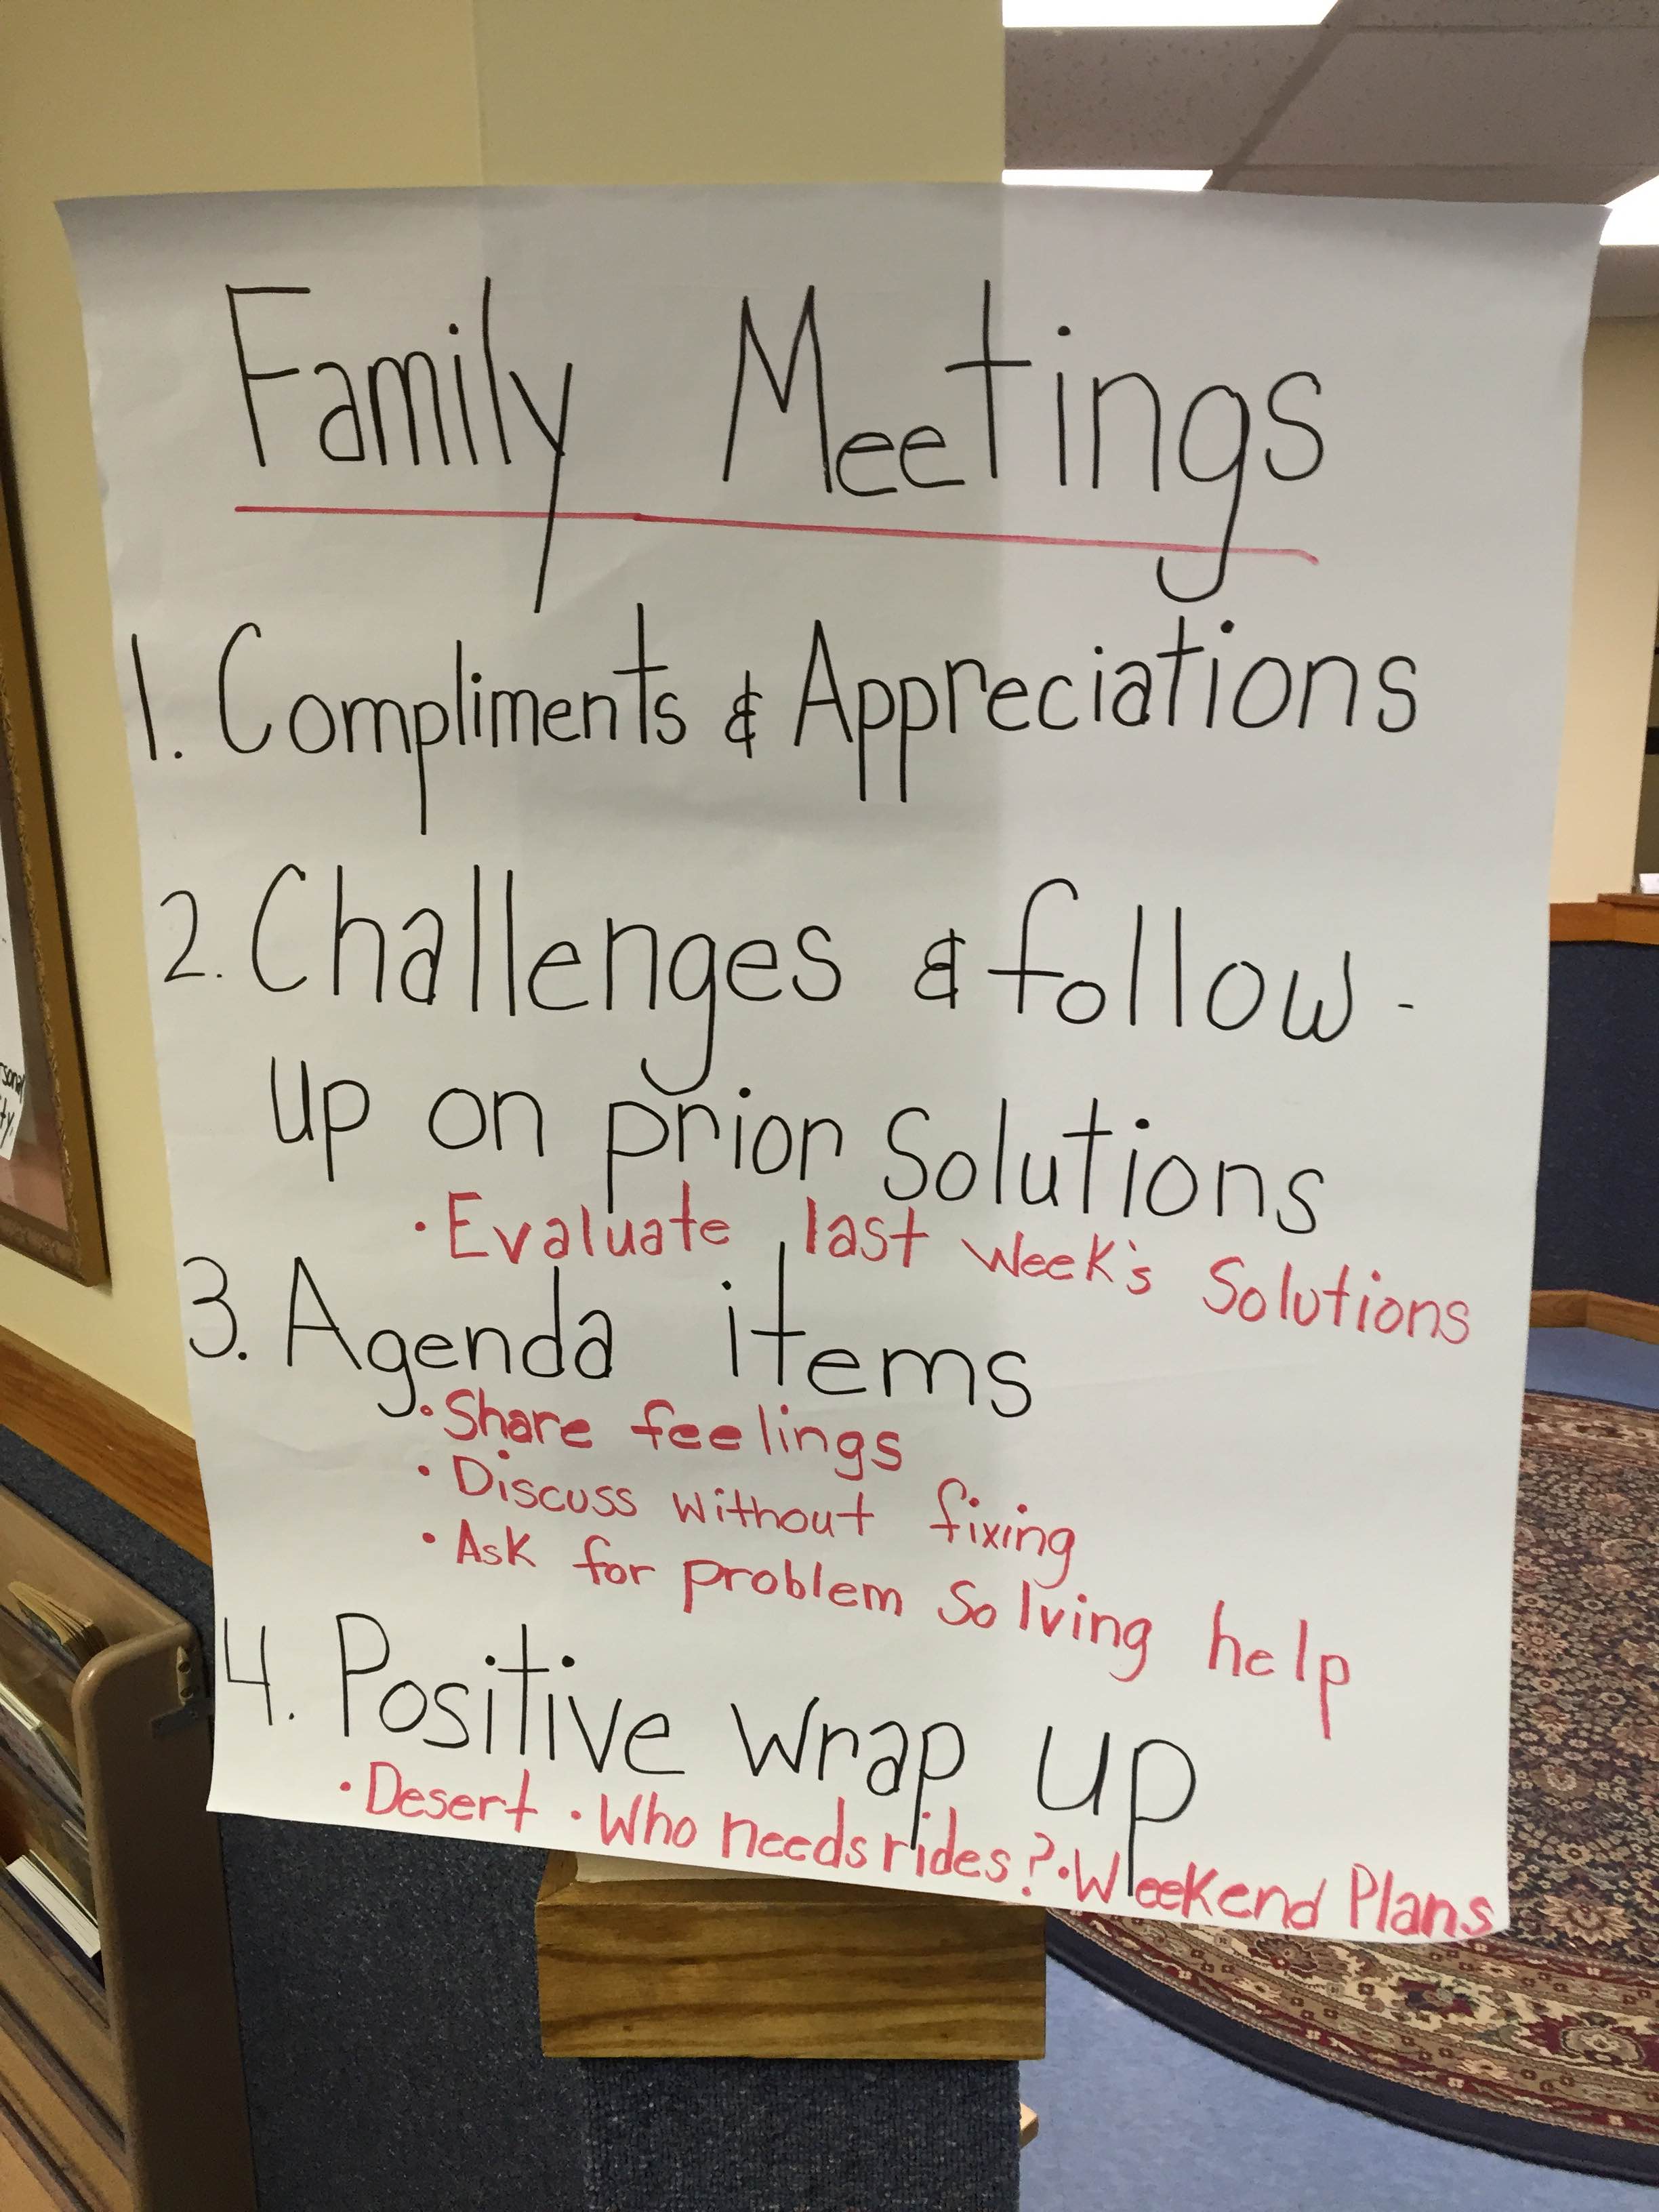 Family Meetings
1. Compliments & Appreciations
2. Challenges & follow-
up on prior Solutions
• Evaluate last week's Solutions
3. Agenda items
• Share feelings
• Discuss without fixing
• Ask for problem Solving help
4. Positive wrap up
• Desert • Who needs rides? • Weekend Plans